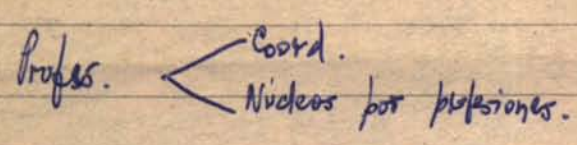 Profes.
Coord.
Núcleos por profesiones.